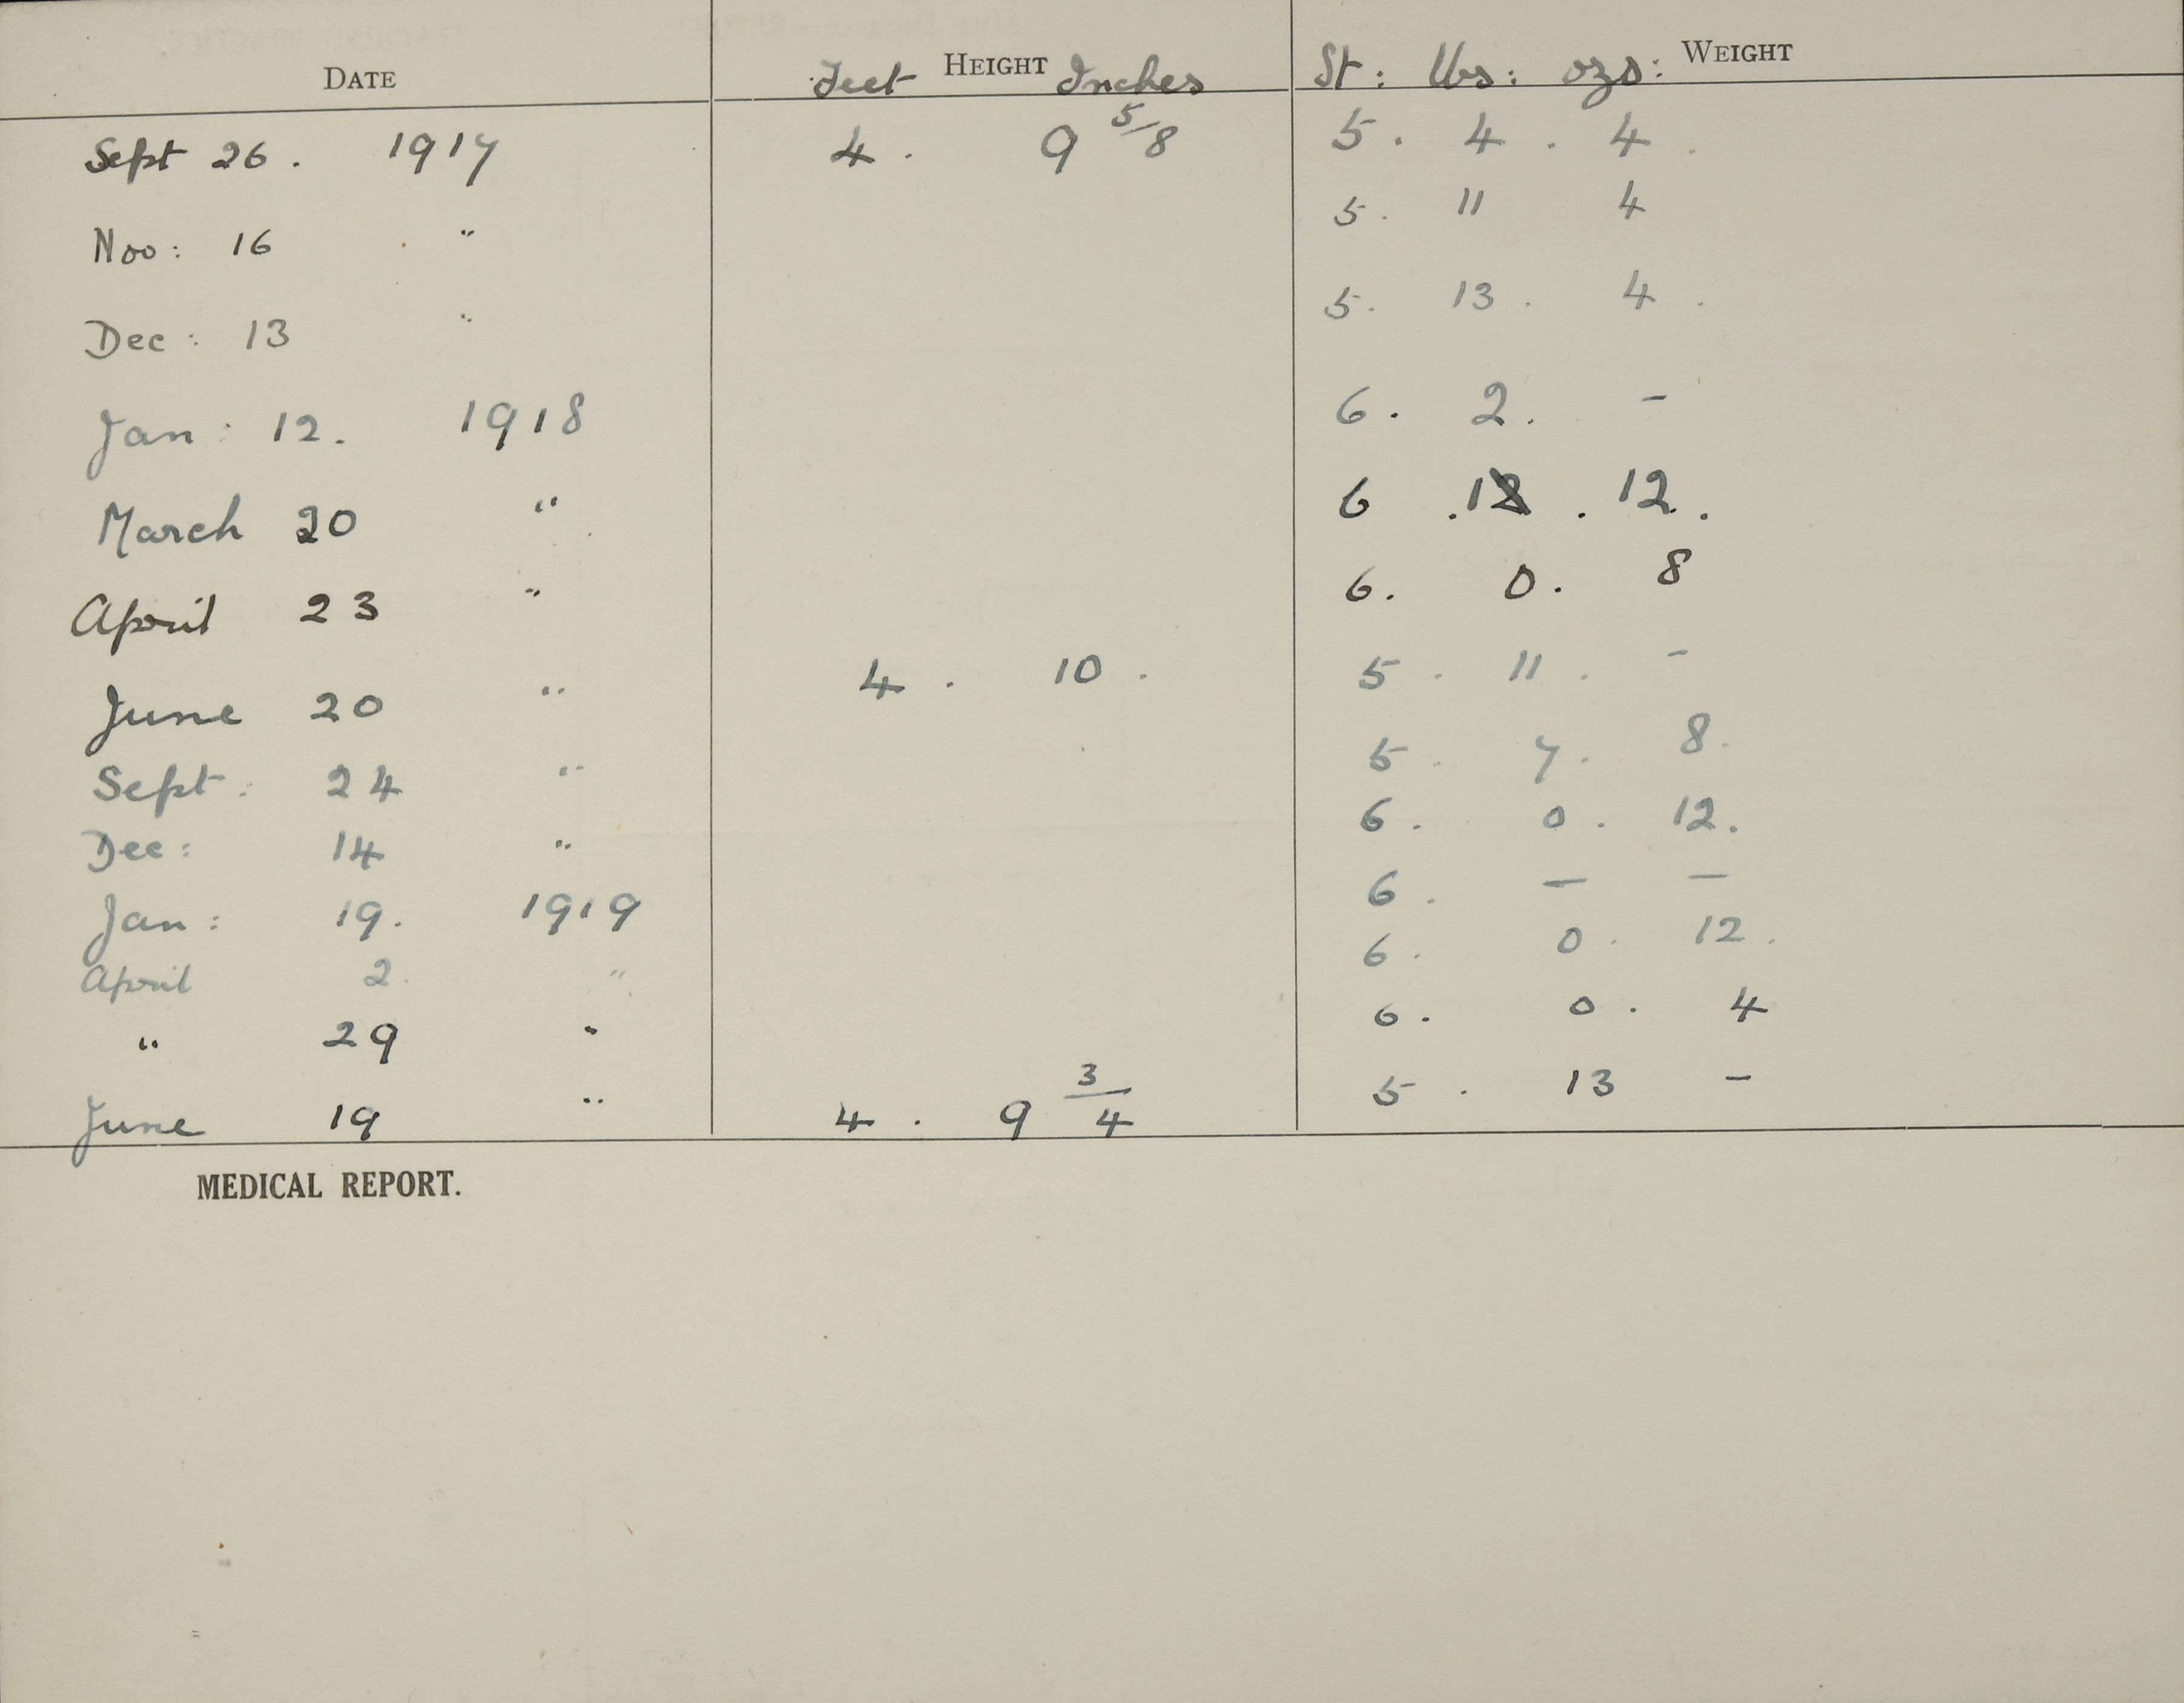 DATE Feet HEIGHT Inches St: lbs: ozs: WEIGHT
Sept 26. 1917 4. 9 5/8 5. 4. 4.
Nov: 16 " 5. 11 4
Dec: 13 " 5. 13. 4.
Jan: 12. 1918 6. 2. -
March 20 " 6 .1 . 12.
April 23 " 6. 0. 8
June 20 " 4. 10. 5. 11. -
Sept: 24 " 5. 7. 8.
Dec: 14 " 6. 0. 12.
Jan: 19. 1919 6. — —
April 2. " 6. 0. 12.
" 29 " 6. 0. 4
June 19 " 4. 9 3/4 5. 13 -
MEDICAL REPORT.